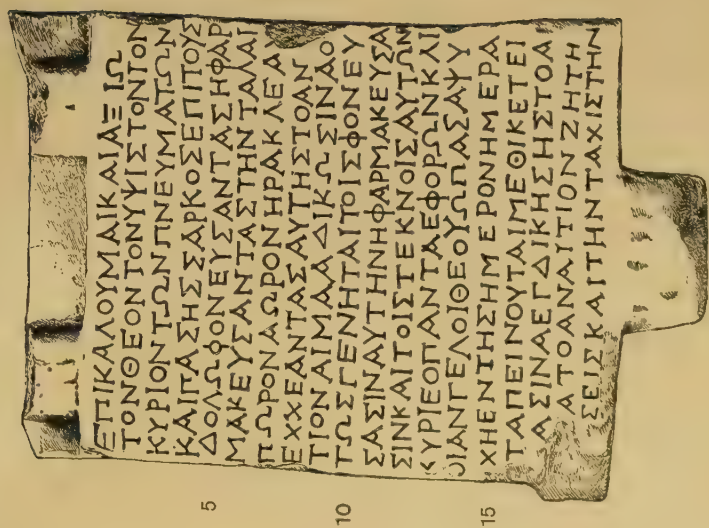 ΕΠΙΚΑΛΟΥΜΑΙΚΑΙΑΞΙΩ
ΤΟΝΘΕΟΝΤΟΝΥΨΙΣΤΟΝΤΟΝ
ΚΥΡΙΟΝΤΩΝΠΝΕΥΜΑΤΩΝ
ΚΑΙΠΑΣΗΣΣΑΡΚΟΣΕΠΙΤΟΥΣ
5 ΔΟΛΩΦΟΝΕΥΣΑΝΤΑΣΗΦΑΡ
ΜΑΚΕΥΣΑΝΤΑΣΤΗΝΤΑΛΑΙ
ΠΩΡΟΝΑΩΡΟΝΗΡΑΚΛΕΑ
ΕΧΧΕΑΝΤΑΣΑΥΤΗΣΤΟΑΝ
ΤΙΟΝΑΙΜΑΑΔΙΚΩΣΙΝΑΟ
10 ΤΩΣΓΕΝΗΤΑΙΤΟΙΣΦΟΝΕΥ
ΣΑΣΙΝΑΥΤΗΝΗΦΑΡΜΑΚΕΥΣΑ
ΣΙΝΚΑΙΤΟΙΣΤΕΚΝΟΙΣΑΥΤΩΝ
ΚΥΡΙΕΟΠΑΝΤΑΕΦΟΡΩΝΚΑΙ
ΟΙΑΝΓΕΛΟΙΘΕΟΥΩΠΑΣΑΨΥ
15 ΧΗΕΝΤΗΣΗΜΕΡΟΝΗΜΕΡΑ
ΤΑΠΕΙΝΟΥΤΑΙΜΕΘΙΚΕΤΕΙ
ΑΣΙΝΑΕΓΔΙΚΗΣΗΣΤΟΑ
ΑΤΟΑΝΑΙΤΙΟΝΖΗΤΗ
ΣΕΙΣΚΑΙΤΗΝΤΑΧΙΣΤΗΝ